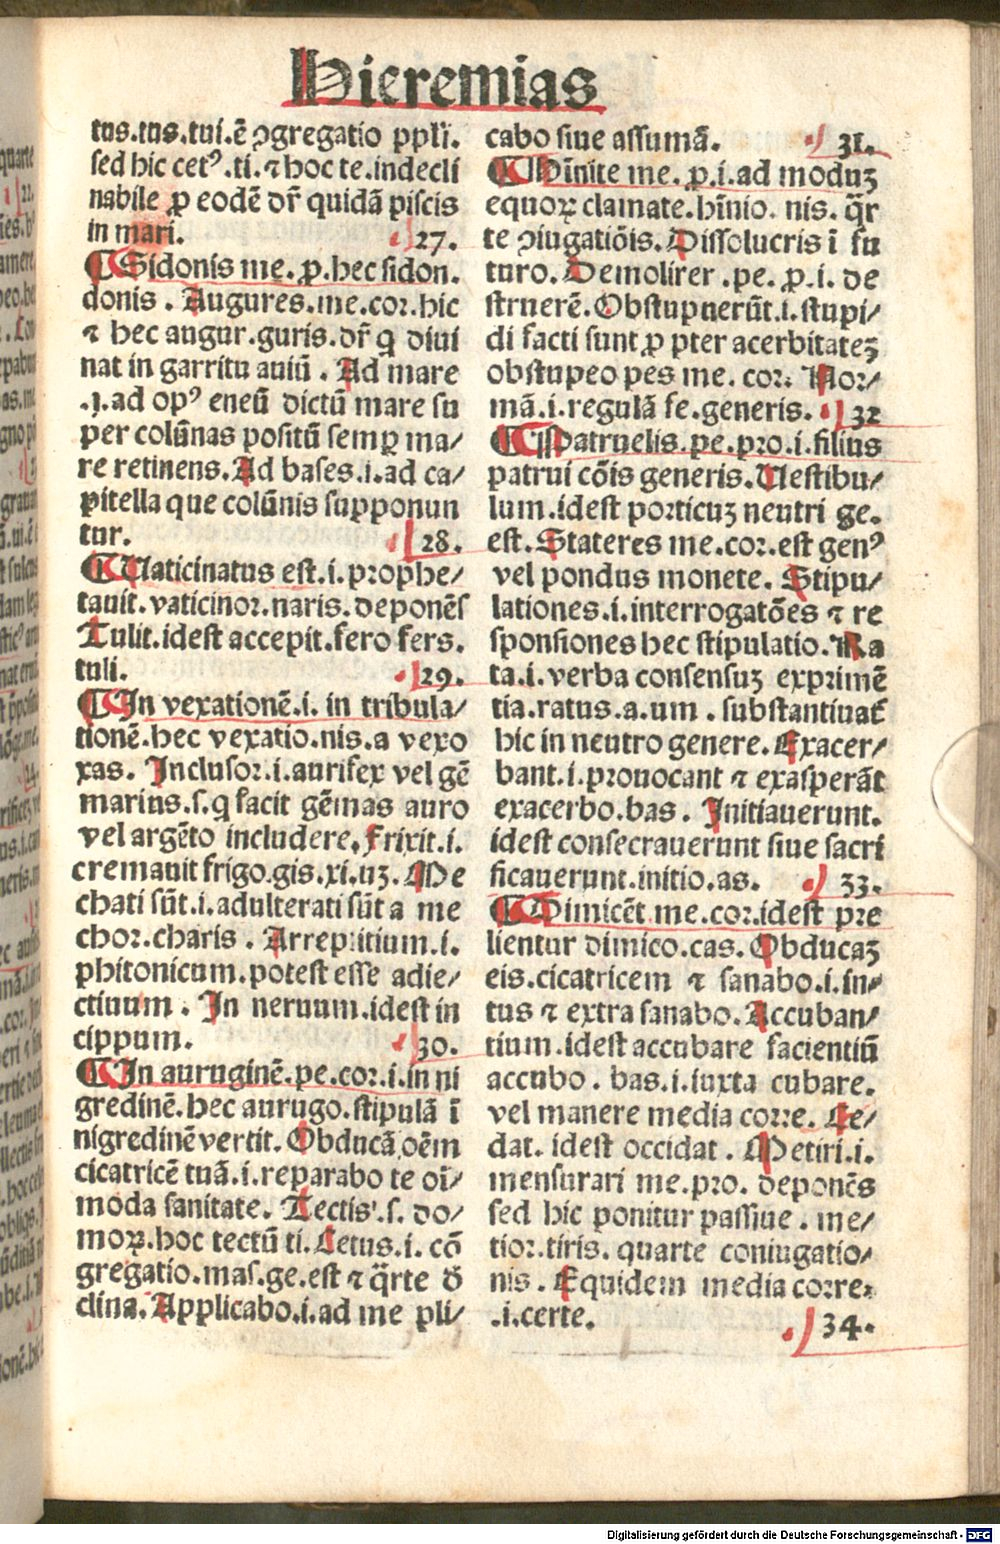 Hieremias
tus.tus.tui.ē ꝯgregatio ppl̄i.
sed hic cetꝰ.ti.⁊ hoc te.indecli
nabile ꝓ eodē dr̄ quidā piscis
in mari. 27.
¶ Sidonis me.ꝓ.hec sidon.
donis . Augures.me.cor.hic
⁊ hec augur.guris.dr̄ q̇ diui
nat in garritu auiū . Ad mare
.i.ad opꝰ eneū dictū mare su
per colūnas positū semꝑ ma/
re retinens.Ad bases.i.ad ca/
pitella que colūnis supponun
tur. 28.
¶ Uaticinatus est.i.prophe/
tauit.vaticinor.naris.deponēs
Tulit.idest accepit.fero fers.
tuli. 29.
¶ In vexationē.i. in tribula/
tionē.hec vexatio.nis.a vexo
xas. Inclusor.i.aurifex vel gē
marius.s.q̇ facit gēmas auro
vel argēto includere. Frixit.i.
cremauit frigo.gis.xi.uꝫ. Me
chati sūt.i.adulterati sūt a me
chor.charis . Arreptitium.i.
phitonicum.potest esse adie/
ctiuum . In neruum.idest in
cippum. 30.
¶ In auruginē.pe.cor.i.in ni
gredinē.hec aurugo.stipulā ī
nigredinē vertit. Obducā oēm
cicatricē tuā.i.reparabo te oī/
moda sanitate. Tectis'.s. do/
moꝝ.hoc tectū ti. Cetus.i. cō
gregatio.mas.ge.est ⁊ q̄rte đ
clina. Applicabo.i.ad me pli/
cabo siue assumā. 31.
¶ Hīnite me. ꝓ.i.ad moduꝫ
equoꝝ clamate.hīnio. nis. q̄r
te ꝯiugatiōis. Dissolueris ī fu
turo. Demolirer .pe. ꝓ.i. de
struerē. Obstupuerūt.i.stupi/
di facti sunt ꝓpter acerbitateꝫ
obstupeo pes me. cor. Nor/
mā.i.regulā fe.generis. 32
¶ Patruelis.pe.pro.i.filius
patrui cōis generis. Uestibu/
lum.idest porticuꝫ neutri ge.
est. Stateres me.cor.est genꝰ
vel pondus monete. Stipu/
lationes.i.interrogatōes ⁊ re
sponsiones hec stipulatio. Ra
ta.i.verba consensuꝫ exprimē
tia.ratus.a.um . substantiuat̄
hic in neutro genere. Exacer/
bant.i.prouocant ⁊ exasperāt
exacerbo.bas . Initiauerunt.
idest consecrauerunt siue sacri
ficauerunt.initio.as. 33.
¶ Dimicēt me.cor.idest pre
lientur dimico.cas. Obducaꝫ
eis.cicatricem ⁊ sanabo.i.in/
tus ⁊ extra sanabo. Accuban/
tium.idest accubare facientiū
accubo . bas.i.iuxta cubare.
vel manere media corre. Ce/
dat. idest occidat . Metiri.i.
mensurari me.pro. deponēs
sed hic ponitur passiue . me/
tior.tiris. quarte coniugatio/
nis . Equidem media corre.
.i.certe. 34.
Digitalisierung gefördert durch die Deutsche Forschungsgemeinschaft - DFG